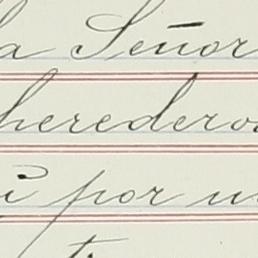 la Señor
herederos
i por u